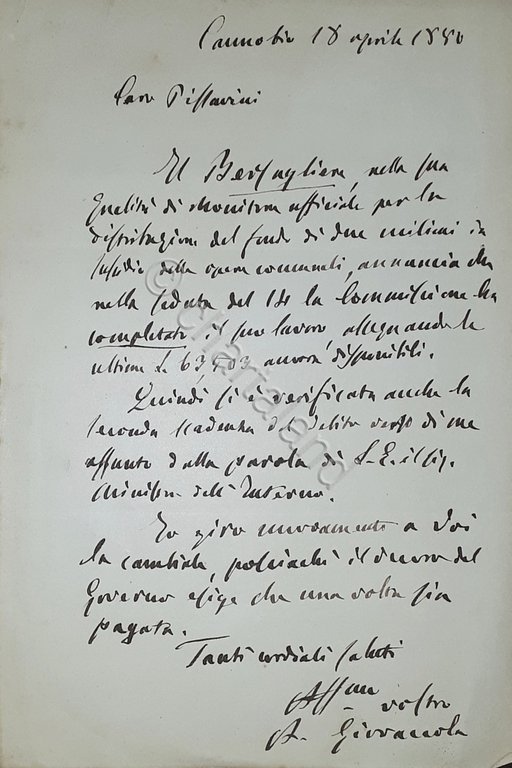 Cannobio 18 aprile 1880
Caro Pissavini
Il Bersagliere, nella sua
qualità di Monitore ufficiale per la
distribuzione del fondo di due milioni in
sussidio delle opere comunali, annuncia che
nella seduta del 14 la Commissione ha
completato il suo lavoro allegando le
ultime L. 63,503 ancora disponibili.
Quindi si è verificata anche la
seconda scadenza del debito verso di me
assunto dalla parola di S. E. il Sig.
Ministro dell'Interno.
Io giro nuovamente a Voi
la cambiale, poichè il decoro del
Governo esige che una volta sia
pagata.
Tanti cordiali saluti
Affmo
vostro
A. Giovanola
© Chartaland